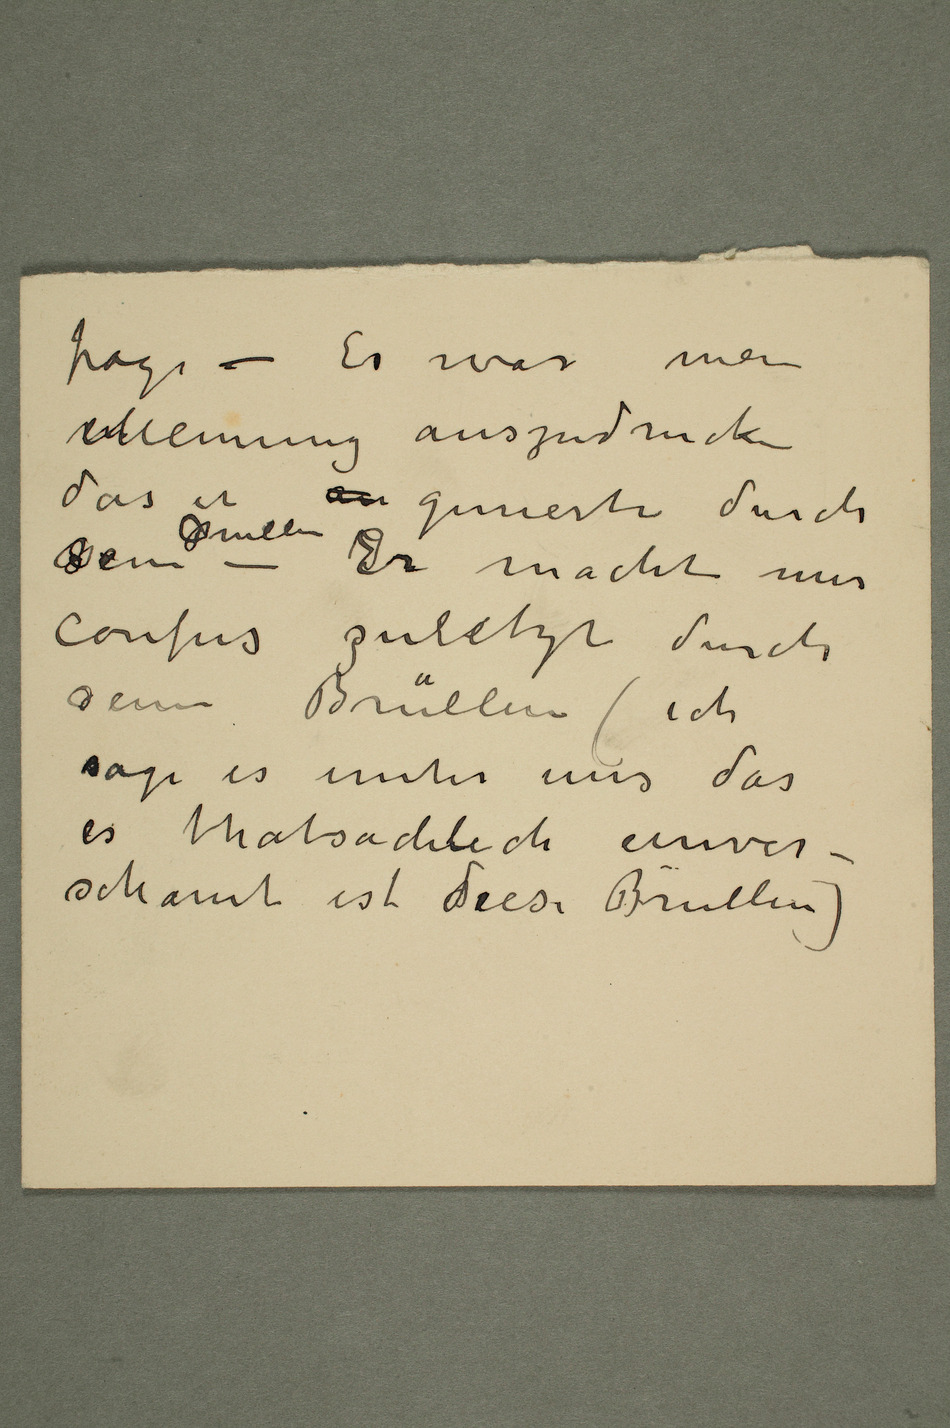 frage – Es war mein
Meinung auszudrucken
das er genierte durch
sein Brüllen – Er macht mir
confus zuletzt durch
sein Brüllen (ich
sage es unter uns das
es thatsächlich unver-
schämt ist diese Brüllen)